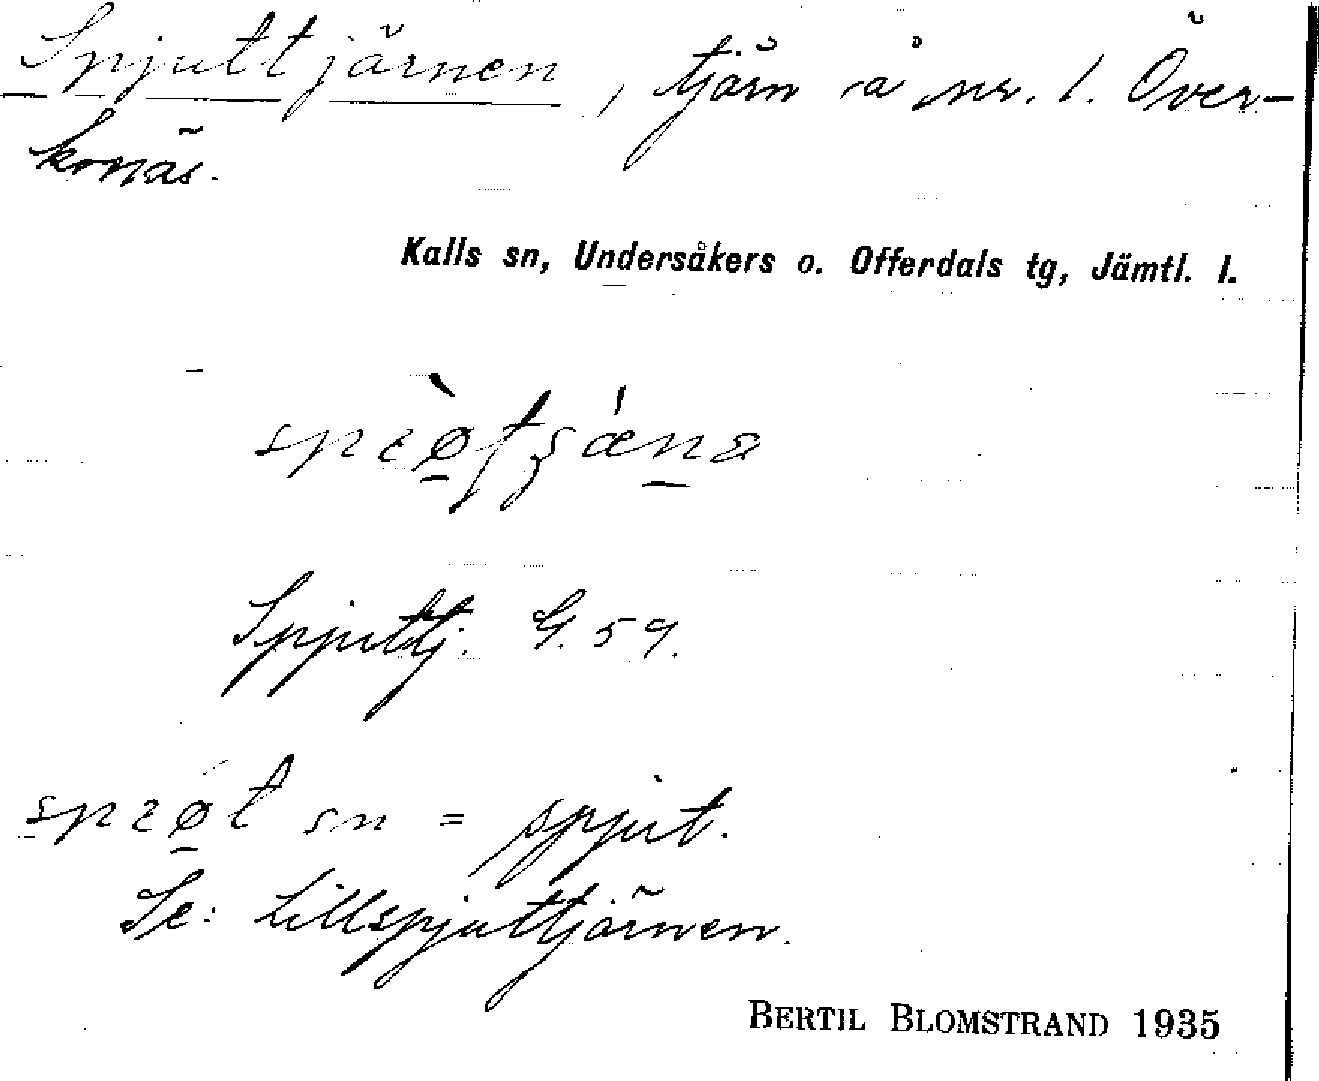 Spjuttjärnen, tjärn å nr. 1. Över-
konäs.
Kalls sn, Undersåkers o. Offerdals tg, Jämtl. l.
Spjuttj. G. 59.
sn = spjut.
Se: Lillspjuttjärnen.
BERTIL BLOMSTRAND 1935